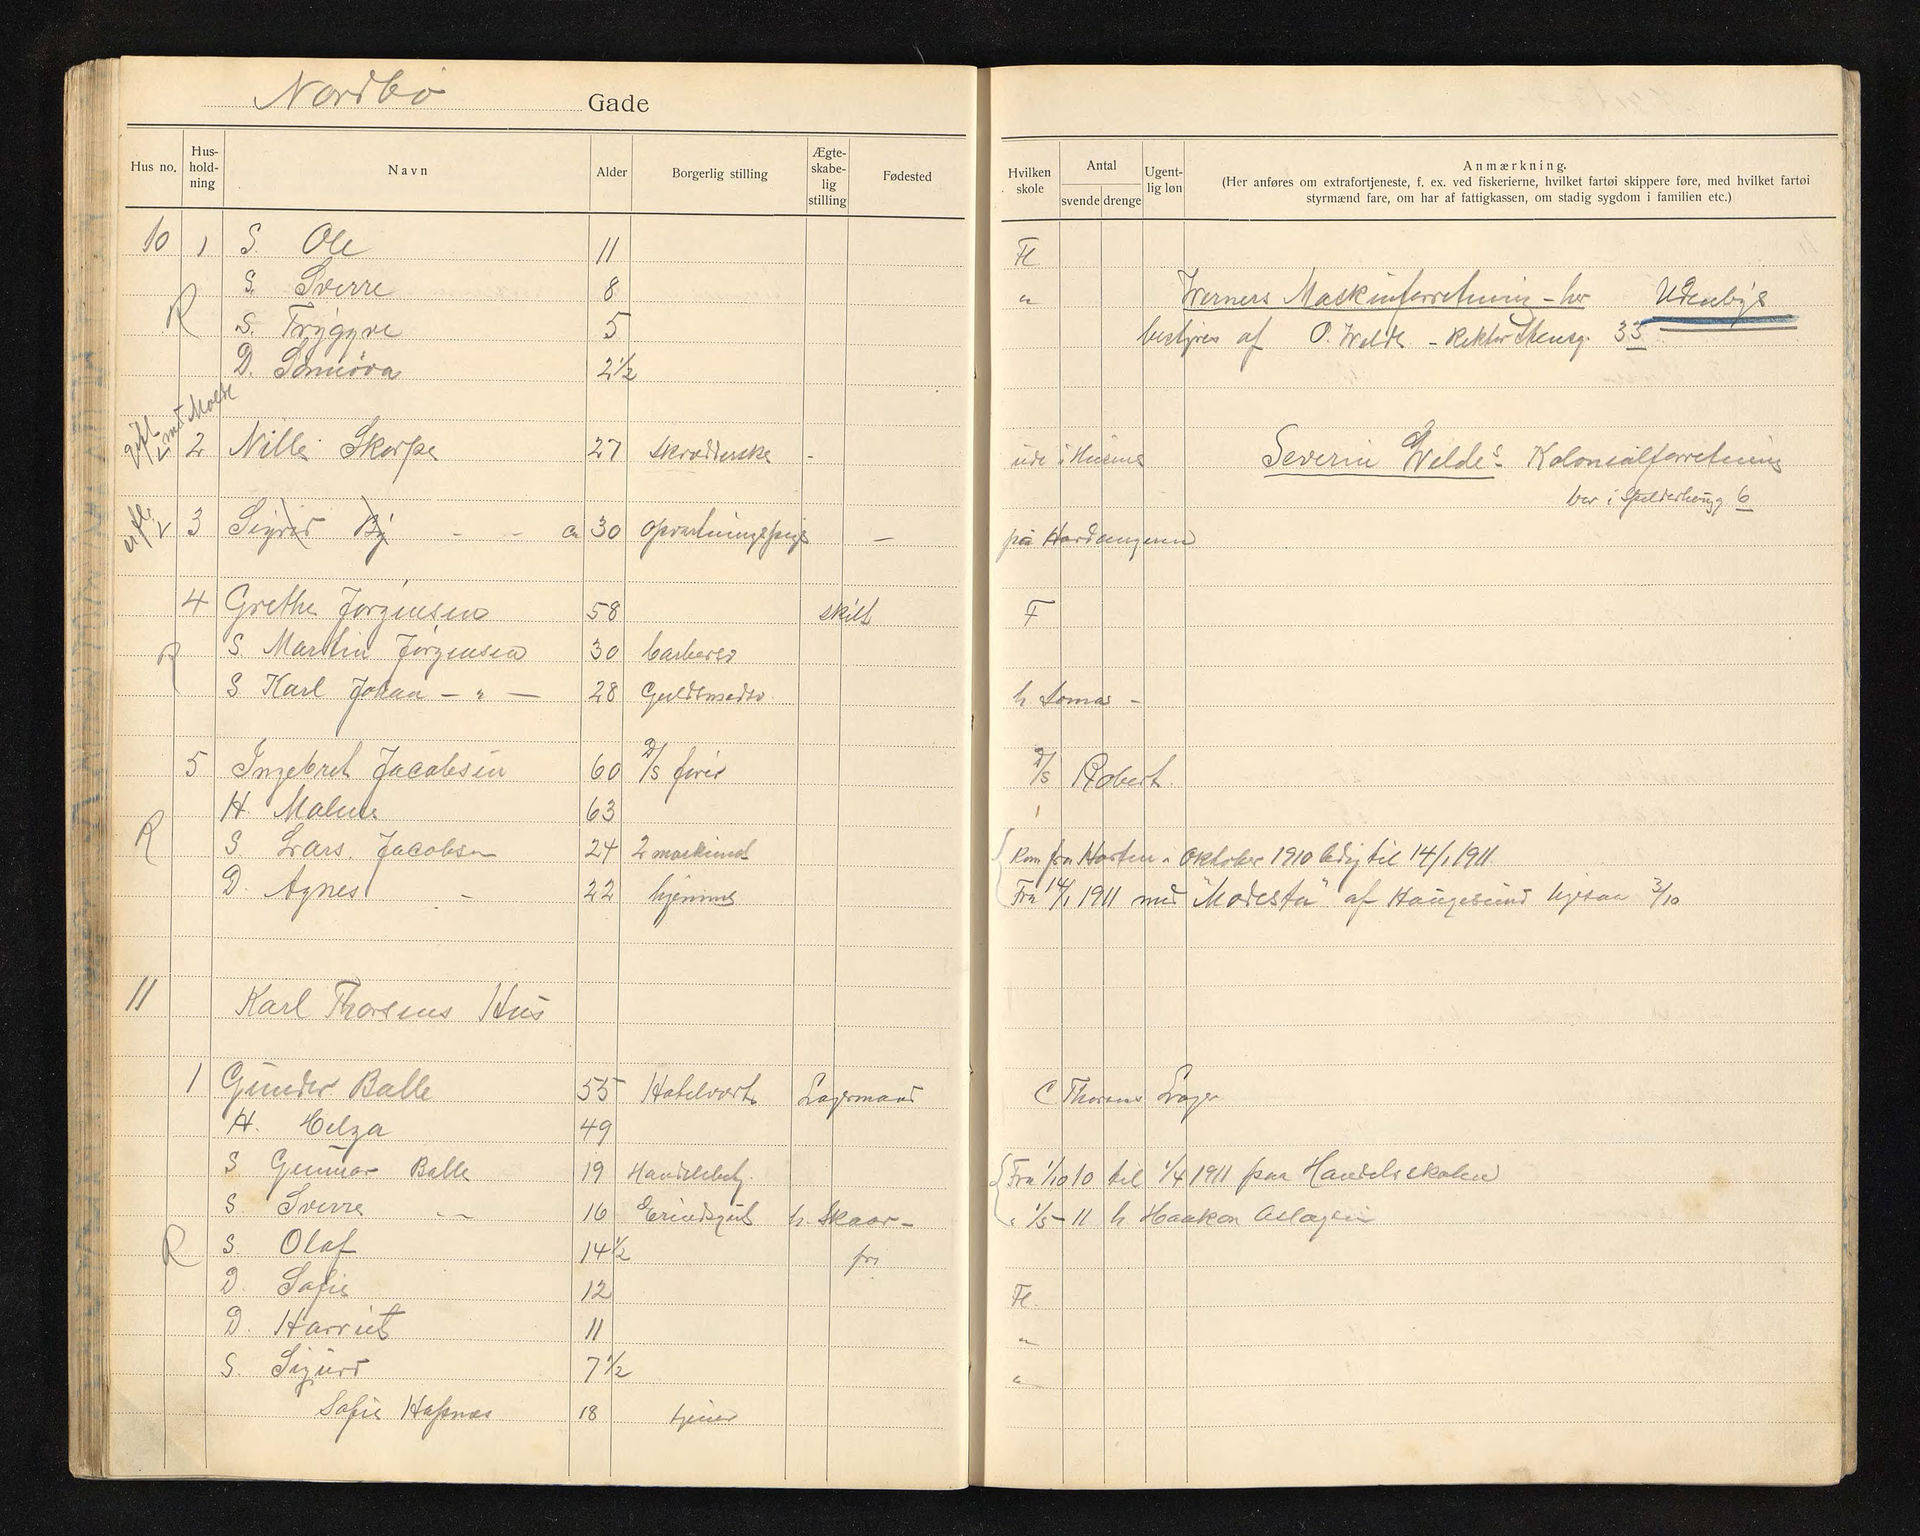 Nordbö Gade
Hus no. Hus-hold-ning Navn Alder Borgerlig stilling Ægte-skabe-lig stilling Fødested
Hvilken skole Antal svende drenge Ugent-lig løn Anmærkning.
(Her anføres om extrafortjeneste, f. ex. ved fiskerierne, hvilket fartøi skippere føre, med hvilket fartøi
styrmænd fare, om har af fattigkassen, om stadig sygdom i familien etc.)
10 1 S. Ole 11 Fl
S. Sverre 8 "
R
S. Trygve 5
D. Sunnøva 2½
Werners Maskinforretning - her Udenbys
bestyres af O. Welde - Rektor Stensg. 33
gift med Molde
2 Nille Skorpe 27 skrædderske - ude i Husene
Severin Weldes Kolonialforretning
bor i 6
gift
3 Sigrid By - - ca 30 Opvartningspige - på Hardangeren
4 Grethe Jørgensen 58 skilt F
R
S. Martin Jørgensen 30 barberer
S Karl Johan - " - 28 Guldsmedsv. h. Tomas -
5 Ingebret Jacobsen 60 D/S fører D/S Robert.
H. Malene 63
R
S Lars. Jacobsen 24 2 maskinist Kom fra Horten i Oktober 1910 ledig til 14/1 1911
D. Agnes - 22 hjemme Fra 14/1 1911 med "Modesta" af Haugesund 3/10
11 Karl Thorsens Hus
1 Gunder Balle 55 Hotelvert Lagermand C Thorsens Lager
H. Helga 49
S Gunnar Balle 19 Handelsbetj. Fra 1/10 10 til 1/4 1911 paa Handelsskolen
S. Sverre - - 16 Erindsgut h. Skaar - " 1/5 - 11 h Haakon Aslagsen
R
S. Olaf 14½ fri
D. Sofie 12 Fl.
D. Harriet 11 "
S. Sigurd 7½ "
Sofie Hafsnæs 18 tjener